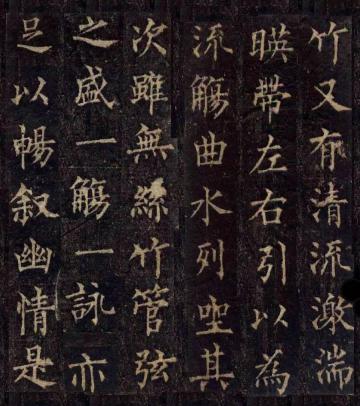 竹又有清流激湍
暎帶左右引以為
流觴曲水列坐其
次雖無絲竹管弦
之盛一觴一詠亦
足以暢叙幽情是